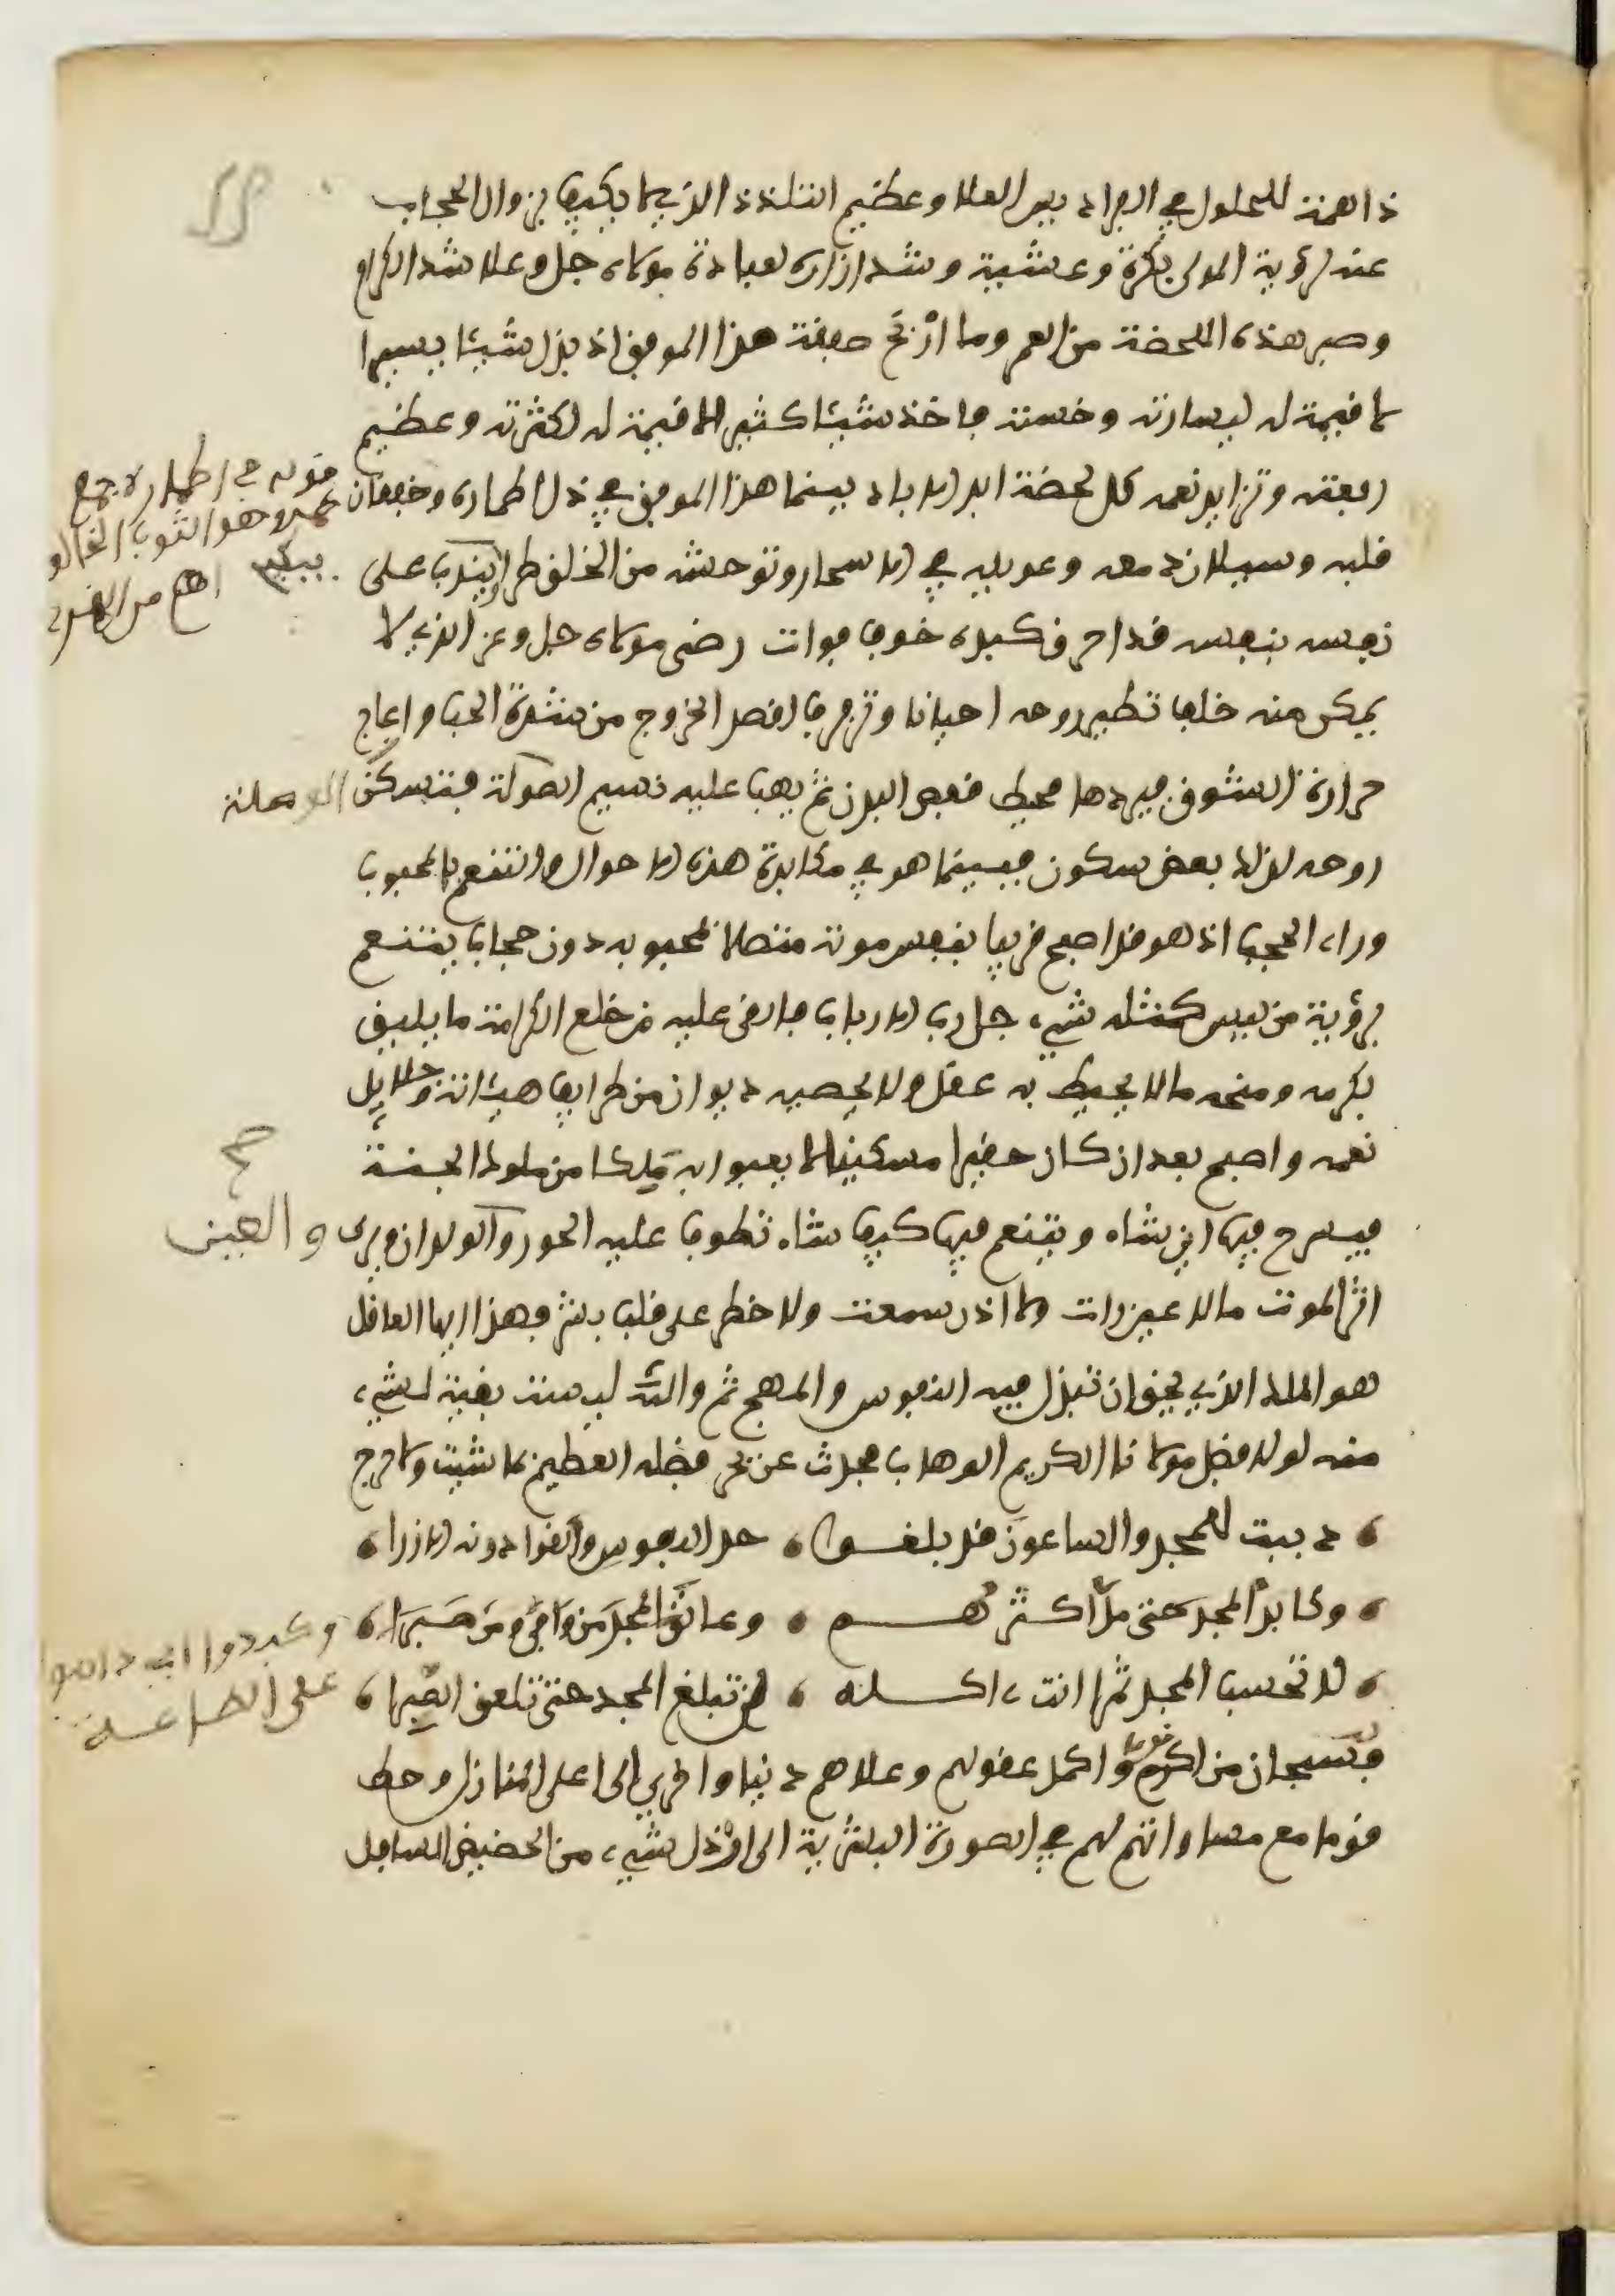 ذا همة للحلول في الفراديس العلا وعظيم التلذذ الذي لا يكيف بزوال الحجاب
عنه لرؤية المولى بكرة وعشية وشد ازاره لعبادة مولاه جل وعلا شد الكرام
وصبر هذه اللحضة من العمر وما أربح صفقة هذا الموفق اذ بذل شيئا يسيرا
لا قيمة له ليسارته وخسته فاخذ شيئا كثيرا لا قيمة له لكثرته وعظيم
رفعته وتزايد نعمه كل لحضة ابد الاباد بينما هذا الموفق في ذل اطماره وخفقان
قلبه وسيلان دمعه وعويله في الاسحار وتوحشه من الخلق طرا يندب على
نفسه بنفسه قد احرق كبده خوف فوات رضى مولاه جل وعز الذي لا
يمكن منه خلف تطير روحه احيانا وترفرف لقصد الخروج من شدة الحب واعاج
حرارة الشوق فيردها محيط قفص البدن ثم يهب عليه نسيم الصولة فتسكن
روحه لذلك بعض سكون فبينما هو في مكابدة هذه الاحوال والتنعم بالمحبوب
وراء الحجب اذ هو قد اصبح قريبا بنفس موته متصلا بمحبوبه دون حجاب يتنعم
برؤية من ليس كمثله شيء جل رب الارباب فالقى عليه من خلع الكرامة ما يليق
بكرمه ومنحه ما لا يحيط به عقل ولا يحصيه ديوان من طرايف هباته وجلايل
نعمه واصبح بعد ان كان حقيرا مسكينا لا يعبوا به ملكا من ملوك الجنة
فيسرح فيها اين شاء ويتنعم فيها كيف شاء تطوف عليه الحور والولدان ويرى
اثر الموت ما لا عين رات ولا اذن سمعت ولا خطر على قلب بشر فهذا ايها العاقل
هو الملك الذي يحق ان تبذل فيه النفوس والمهج ثم والله ليست بقيمة لشيء
منه لولا فضل مولانا الكريم الوهاب فحدث عن بحر فضله العظيم بما شيت ولا حرج
دببت للمجد والساعون قد بلغوا حد النفوس والقوا دونه الازرا
وكابدوا المجد حتى مل أكثرهم وعانق المجد من وافى ومن صبرا
لا تحسب المجد تمرا انت ءاكله لن تبلغ المجد حتى تلعق الصبرا
فسبحان من اكرم قوما واكمل عقولهم وعلاهم دنيا واخرى الى اعلى المنازل وحط
قوما مع مساواتهم لهم في الصورة البشرية الى ارذل شيء من الحضيض السافل
قوله في اطماره جمع
طمر وهو الثوب الخالق
الوصلة
صح
والعين
وكابدوا اي داموا
على الطاعة